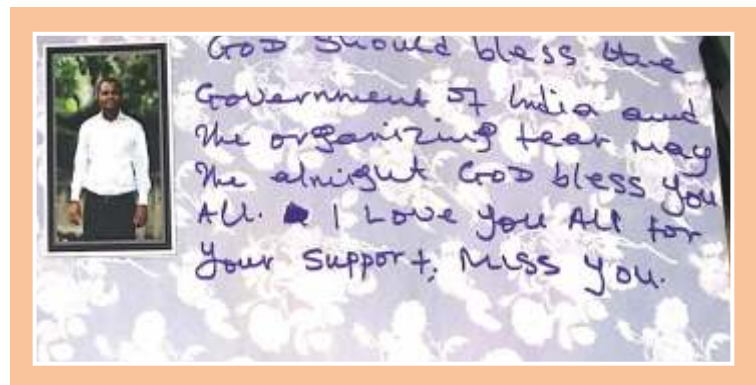 GOD should bless the
Government of India and
the organizing team may
the almight GOD bless you
All. I Love you All for
your support, Miss you.